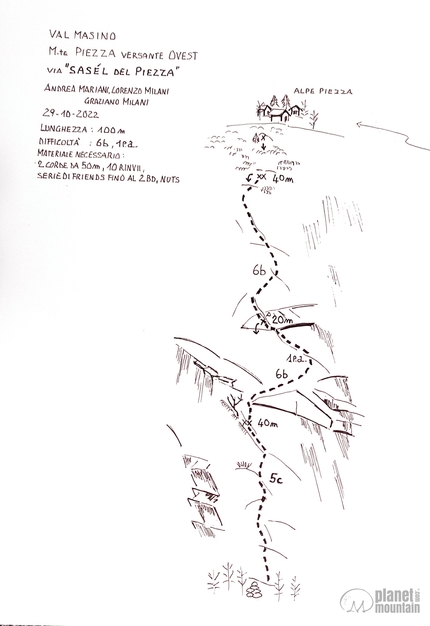 VAL MASINO
M.te PIEZZA VERSANTE OVEST
VIA "SASÉL DEL PIEZZA"
ANDREA MARIANI, LORENZO MILANI
GRAZIANO MILANI
29-10-2022
LUNGHEZZA : 100 m
DIFFICOLTÀ : 6b, 1p.a.
MATERIALE NECESSARIO :
2 CORDE DA 50m, 10 RINVII,
SERIE DI FRIENDS FINO AL 2 BD, NUTS
ALPE PIEZZA
X
XX 40m
6b
20m
1p.a.
6b
40m
5c
planet
mountain